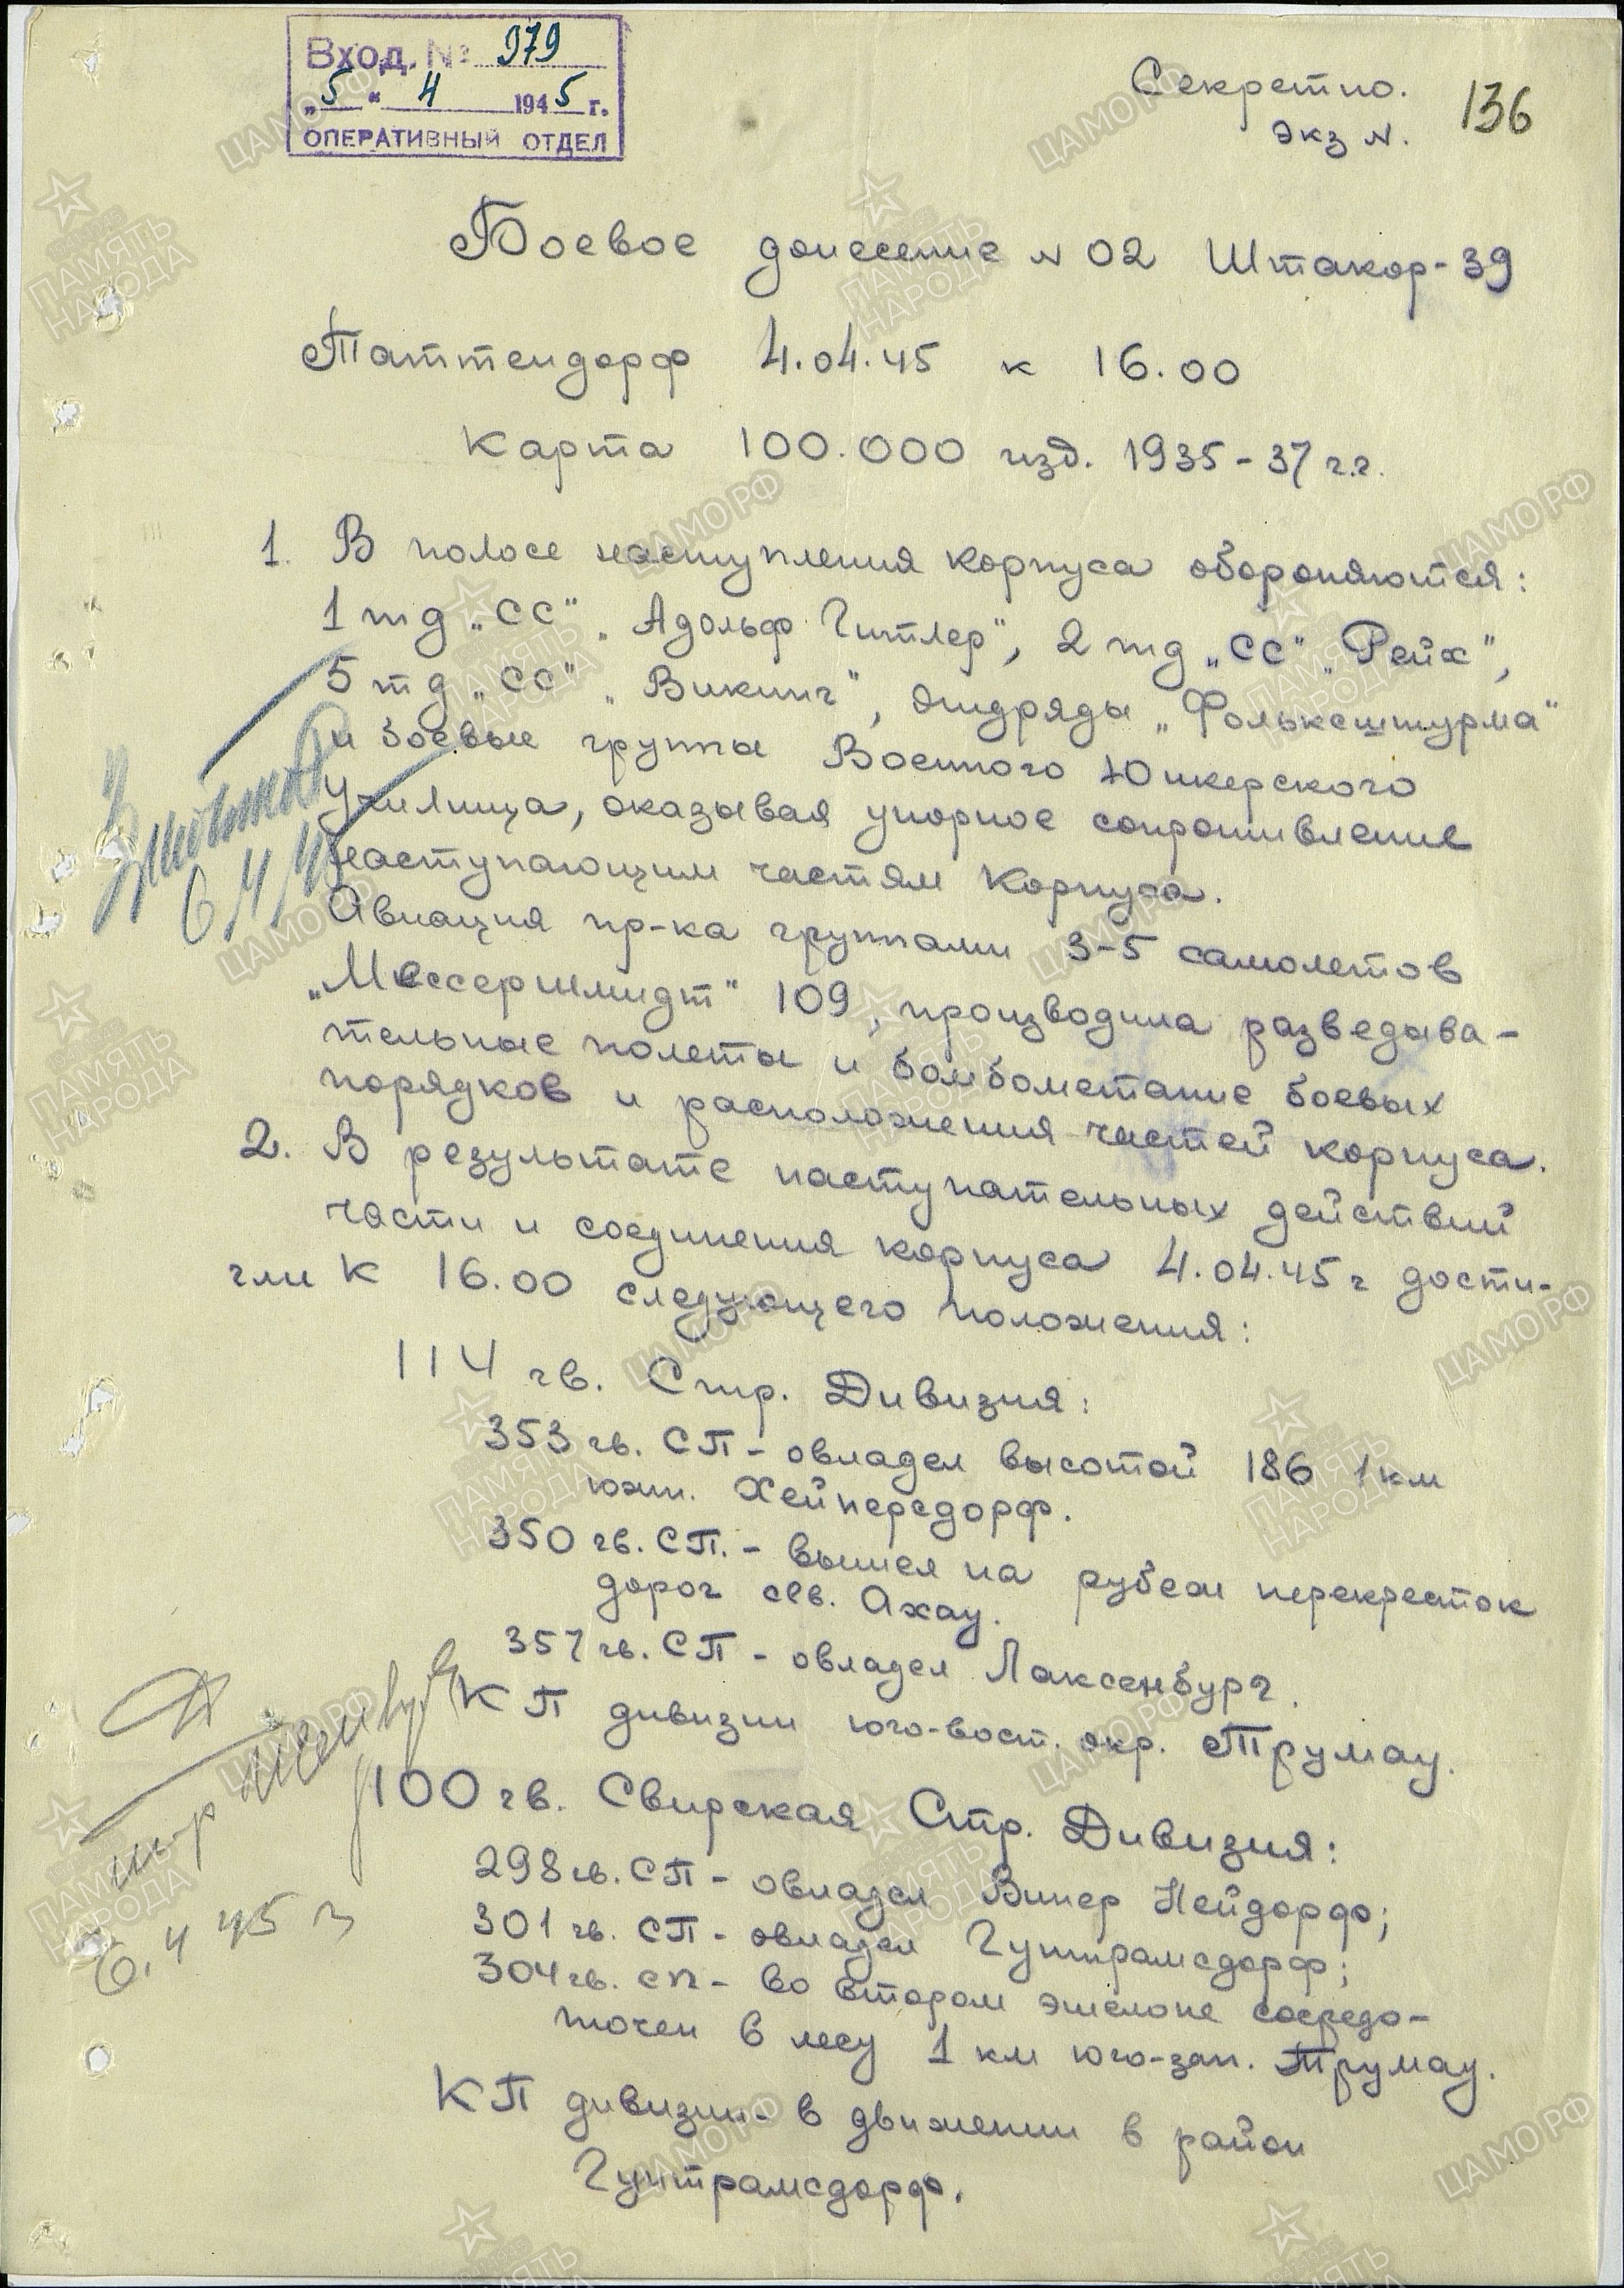 Вход. № 979
„5“ 4 1945 г.
ОПЕРАТИВНЫЙ ОТДЕЛ
Секретно.
Экз N.
136
Боевое донесение N 02 Штакор-39
Таттендорф 4.04.45 к 16.00
Карта 100.000 изд. 1935-37 г.г.
1. В полосе наступления корпуса обороняются:
1 тд „СС“ „Адольф Гитлер“, 2 тд „СС“ „Рейх“,
5 тд „СС“ „Викинг“, отдряды „Фольксштурма“
и боевые группы Военного Юнкерского
училища, оказывая упорное сопротивление
наступающим частям Корпуса.
Авиация пр-ка группами 3-5 самолетов
„Мессершмидт“ 109, производила разведыва-
тельные полеты и бомбометание боевых
порядков и расположения частей корпуса.
2. В результате наступательных действий
части и соединения корпуса 4.04.45 г дости-
гли к 16.00 следующего положения:
114 гв. Стр. Дивизия:
353 гв. СП - овладел высотой 186 1 км
южн. Хейнерсдорф.
350 гв. СП. - вышел на рубеж перекресток
дорог сев. Ахау.
357 гв. СП - овладел Лаксенбург.
КП дивизии юго-вост. окр. Трумау.
100 гв. Свирская Стр. Дивизия:
298 гв. СП - овладел Винер Нейдорф;
301 гв. СП - овладел Гунтрамсдорф;
304 гв. СП - во втором эшелоне сосредо-
точен в лесу 1 км юго-зап. Трумау.
КП дивизии - в движении в район
Гунтрамсдорф.
6.4.45 г
ЦАМО РФ
ПАМЯТЬ
НАРОДА